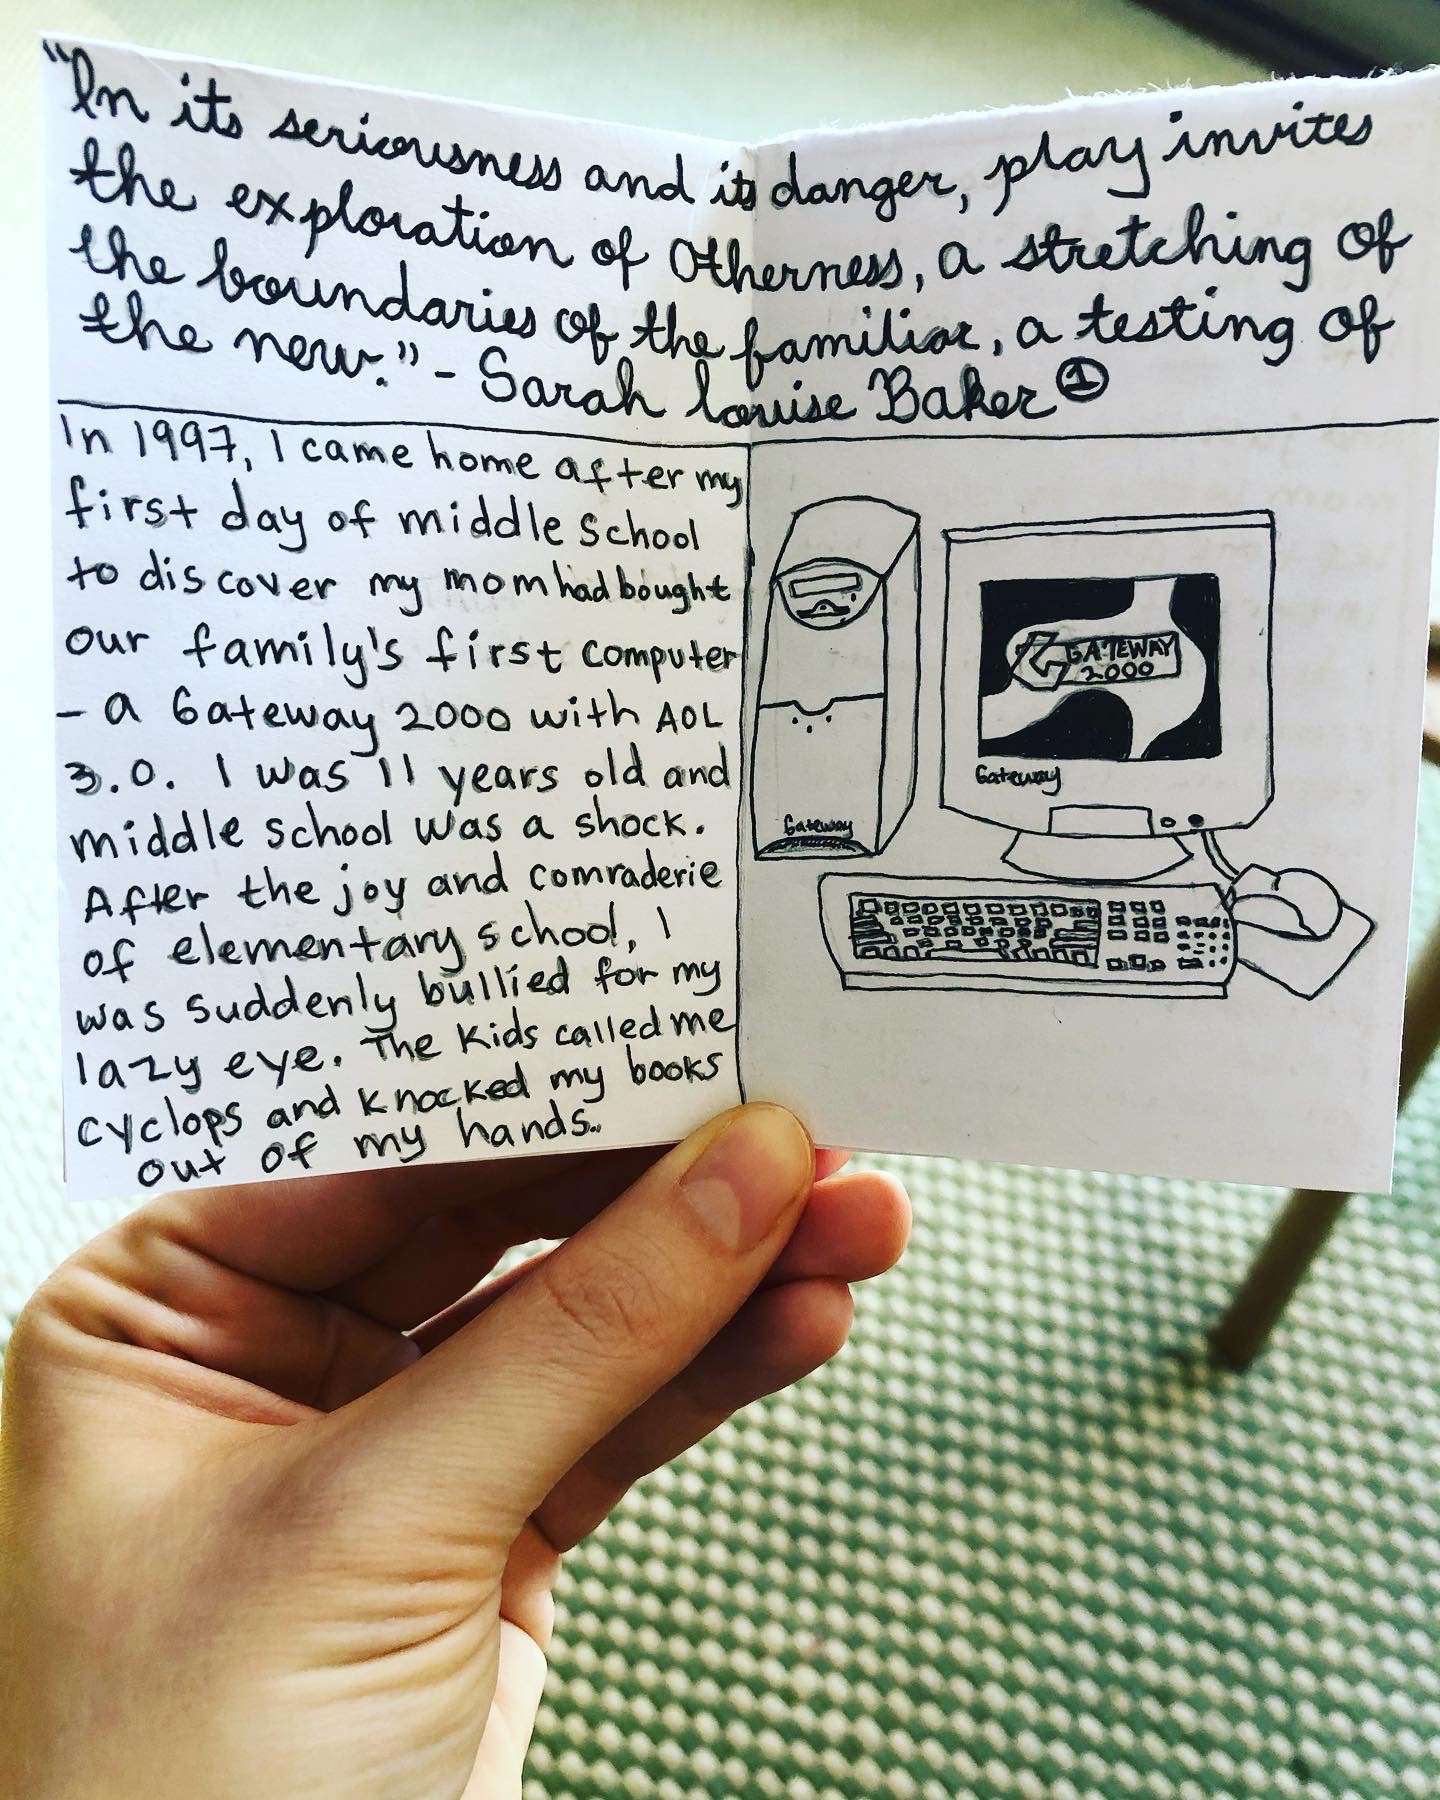 "In its seriousness and its danger, play invites
the exploration of Otherness, a stretching of
the boundaries of the familiar, a testing of
the new." - Sarah Louise Baker ①
In 1997, I came home after my
first day of middle school
to discover my mom had bought
our family's first computer
- a Gateway 2000 with AOL
3.0. I was 11 years old and
middle school was a shock.
After the joy and comraderie
of elementary school, I
was suddenly bullied for my
lazy eye. The kids called me
cyclops and knocked my books
out of my hands.
GATEWAY
2000
Gateway
Gateway